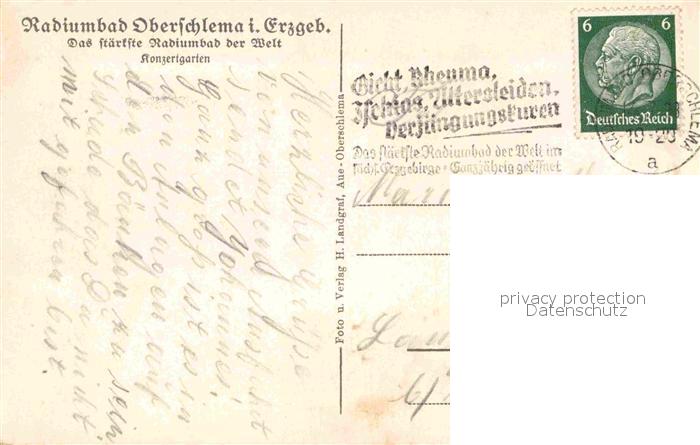 Radiumbad Oberschlema i. Erzgeb.
Das stärkste Radiumbad der Welt
Konzertgarten
Herzliche Grüße
von unserem Ausfahrt
sendet Johannes.
Ganz groß ist es in
den Anlagen auf
den Bänken zu sein
Schade das Du nicht
mit gefahren bist.
Foto u. Verlag H. Landgraf, Aue-Oberschlema
Gicht, Rheuma,
Ischias, Altersleiden,
Verjüngungskuren
Das stärkste Radiumbad der Welt im
sächs. Erzgebirge · Ganzjährig geöffnet
6 6
Deutsches Reich
RADIUMBAD OBERSCHLEMA
19-20
a
privacy protection
Datenschutz